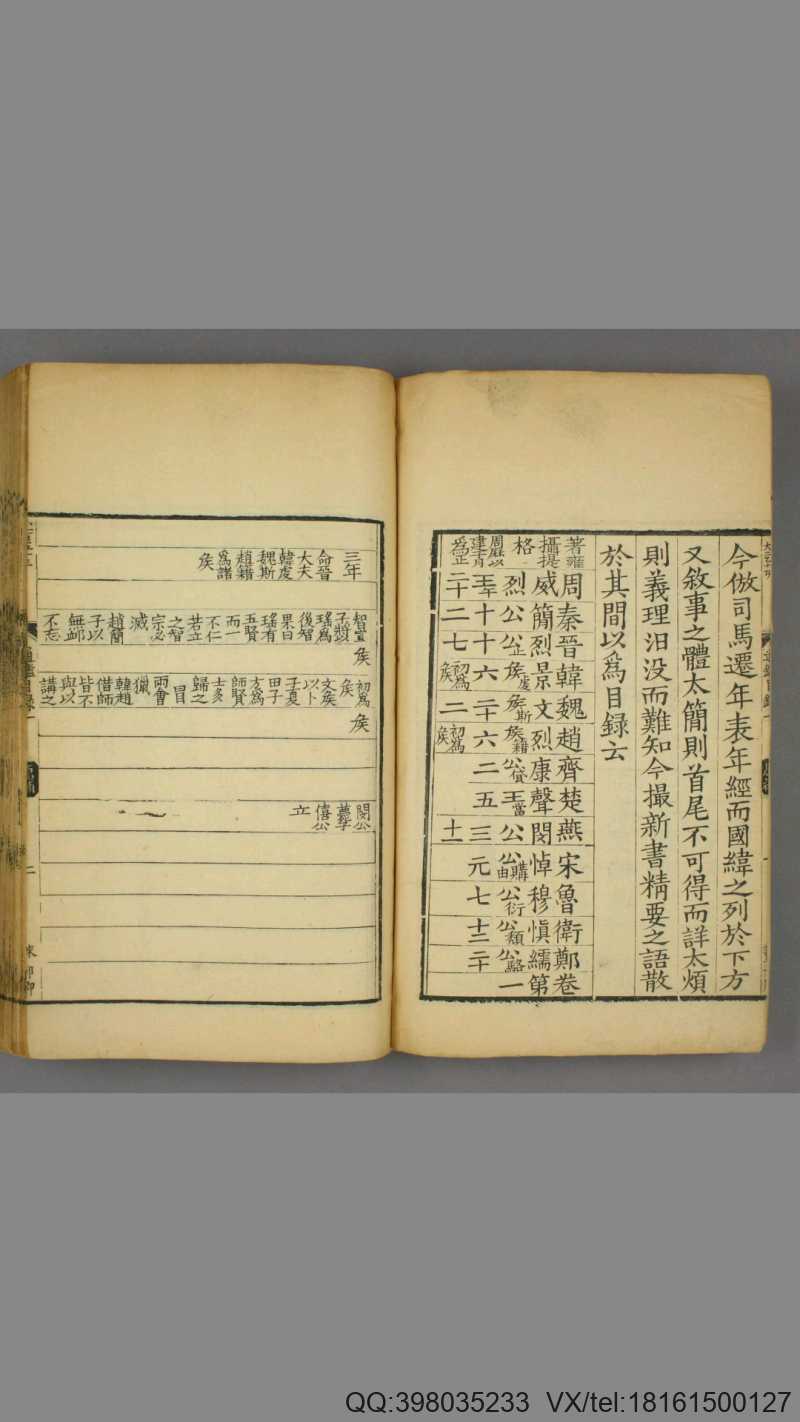 今倣司馬遷年表年經而國緯之列於下方
又敘事之體太簡則首尾不可得而詳太煩
則義理汩没而難知今撮新書精要之語散
於其間以爲目録云
著雍攝提格
周歷以建子爲正
周威烈王二十
秦簡公十二
晉烈公十七
韓景侯虔六 初爲侯
魏文侯斯二十二
趙烈侯籍六 初爲侯
齊康公貸二
楚聲王當五
燕閔公三十一
宋悼公購由元
魯穆公衍七
衛慎公頽十二
鄭繻公駘二十
卷第一
三年
命晉
大夫
韓虔
魏斯
趙籍
爲諸
侯
智宣
子嬖
瑤爲
後智
果曰
瑤有
五賢
而一
不仁
若立
之智
宗必
滅
趙簡
子以
無卹
不忘
侯
初爲
侯
文侯
以卜
子夏
田子
方爲
師賢
士多
歸之
冒
雨會
獵
韓趙
借師
皆不
與以
講之
侯
閔公
薨子
僖公
立
QQ:398035233 VX/tel:18161500127